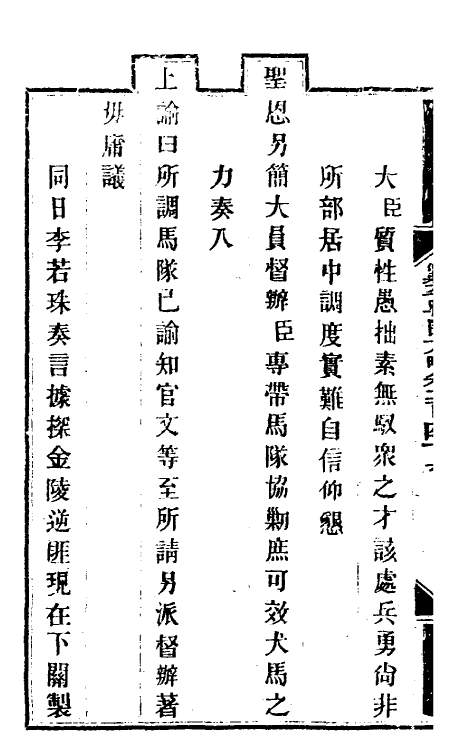 大臣質性愚拙素無馭衆之才該處兵勇尙非
所部居中調度實難自信仰懇
聖恩另簡大員督辦臣專帶馬隊協勦庶可效犬馬之
力奏入
上諭曰所調馬隊已諭知官文等至所請另派督辦著
毋庸議
同日李若珠奏言據探金陵逆匪現在下關製